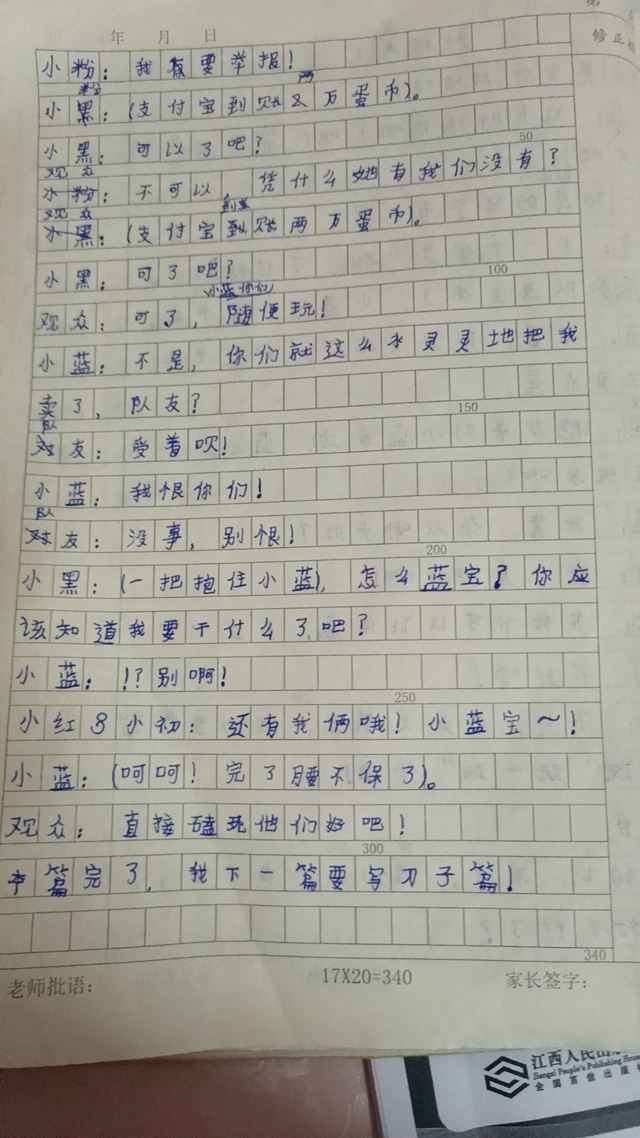 年 月 日
修正
小粉：我要举报！
小黑：（支付宝到账两万蛋币）。
小黑：可以了吧？
50
观众：不可以 凭什么她有我们没有？
观众：（支付宝到账两万蛋币）。
小黑：可了吧？
100
小蓝你们
观众：可了，随便玩！
小蓝：不是，你们就这么水灵灵地把我
卖了，队友？
150
队友：受着呗！
小蓝：我恨你们！
队友：没事，别恨！
200
小黑：（一把抱住小蓝），怎么蓝宝？你应
该知道我要干什么了吧？
小蓝：！？别啊！
250
小红&小初：还有我俩哦！小蓝宝～！
小蓝：（呵呵！完了腰不保了）。
观众：直接磕死他们好吧！
300
本篇完了，我下一篇要写刀子篇！
340
老师批语： 17X20=340 家长签字：
江西人民出
Jiangxi People's Publishing House
全国百佳出版